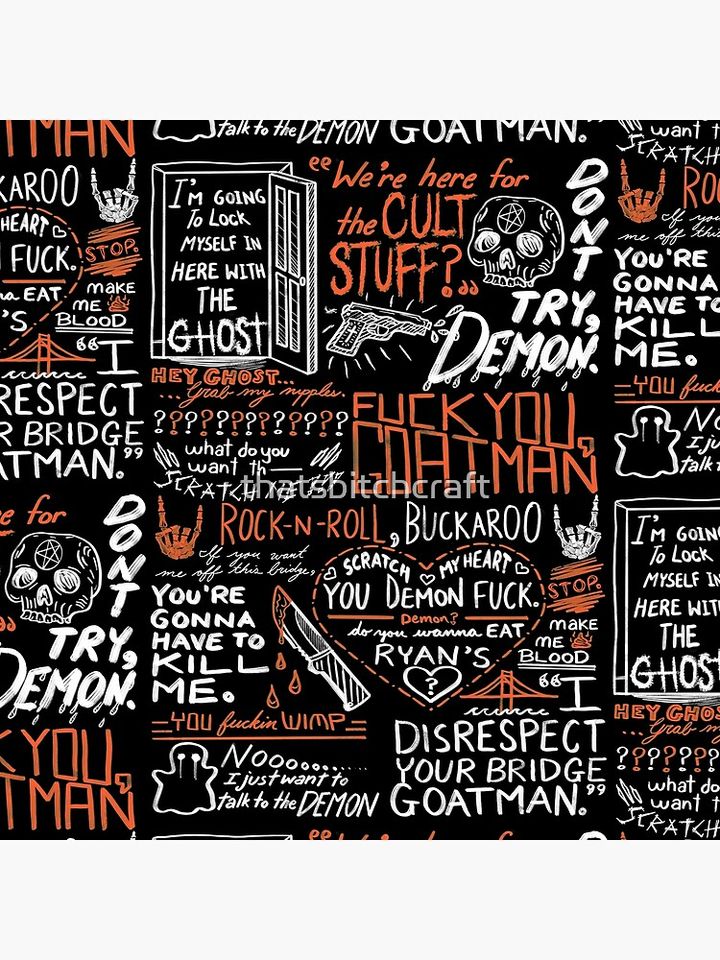 TMAN
CKAROO
HEART
U FUCK.
STOP.
nna EAT
'S
MAKE
ME
BLOOD
“I
DISRESPECT
YOUR BRIDGE
GOATMAN.”
re for
DON'T
TRY,
DEMON.
CK YOU,
TMAN
talk to the DEMON GOATMAN.”
I'M GOING
TO LOCK
MYSELF IN
HERE WITH
THE
GHOST
“We're here for
the CULT
STUFF?”
DON'T
TRY,
DEMON.
HEY GHOST...
...Grab my nipples.
????????????
what do you
want th—
SCRATCH
FUCK YOU,
GOATMAN
thatsbitchcraft
ROCK-N-ROLL, BUCKAROO
If you want
me off this bridge,
YOU'RE
GONNA
HAVE TO
KILL
ME.
—YOU fuckin WIMP—
SCRATCH MY HEART
YOU DEMON FUCK.
Demon?
do you wanna EAT
RYAN'S
?
STOP.
MAKE
ME
BLOOD
Nooo.........
I just want to
talk to the DEMON
“I
DISRESPECT
YOUR BRIDGE
GOATMAN.”
want th
SCRATCH
ROC
If you
me off this
YOU'RE
GONNA
HAVE TO
KILL
ME.
—YOU fucki
NO
I jus
talk t
I'M GOING
TO LOCK
MYSELF IN
HERE WITH
THE
GHOST
HEY GHOS
...Grab my
????????
what do
want th
SCRATCH